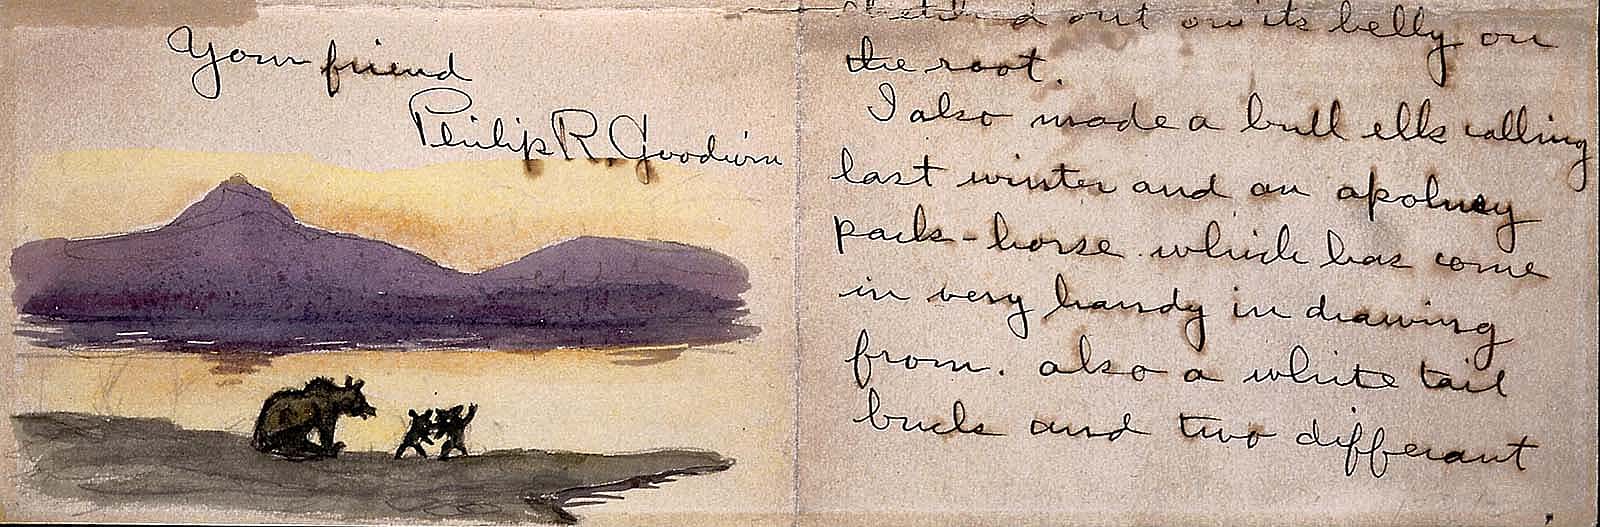 Your friend
Philip R. Goodwin
out on its belly on
the root.
I also made a bull elk calling
last winter and an apolusy
pack-horse which has come
in very handy in drawing
from. also a white tail
buck and two differant